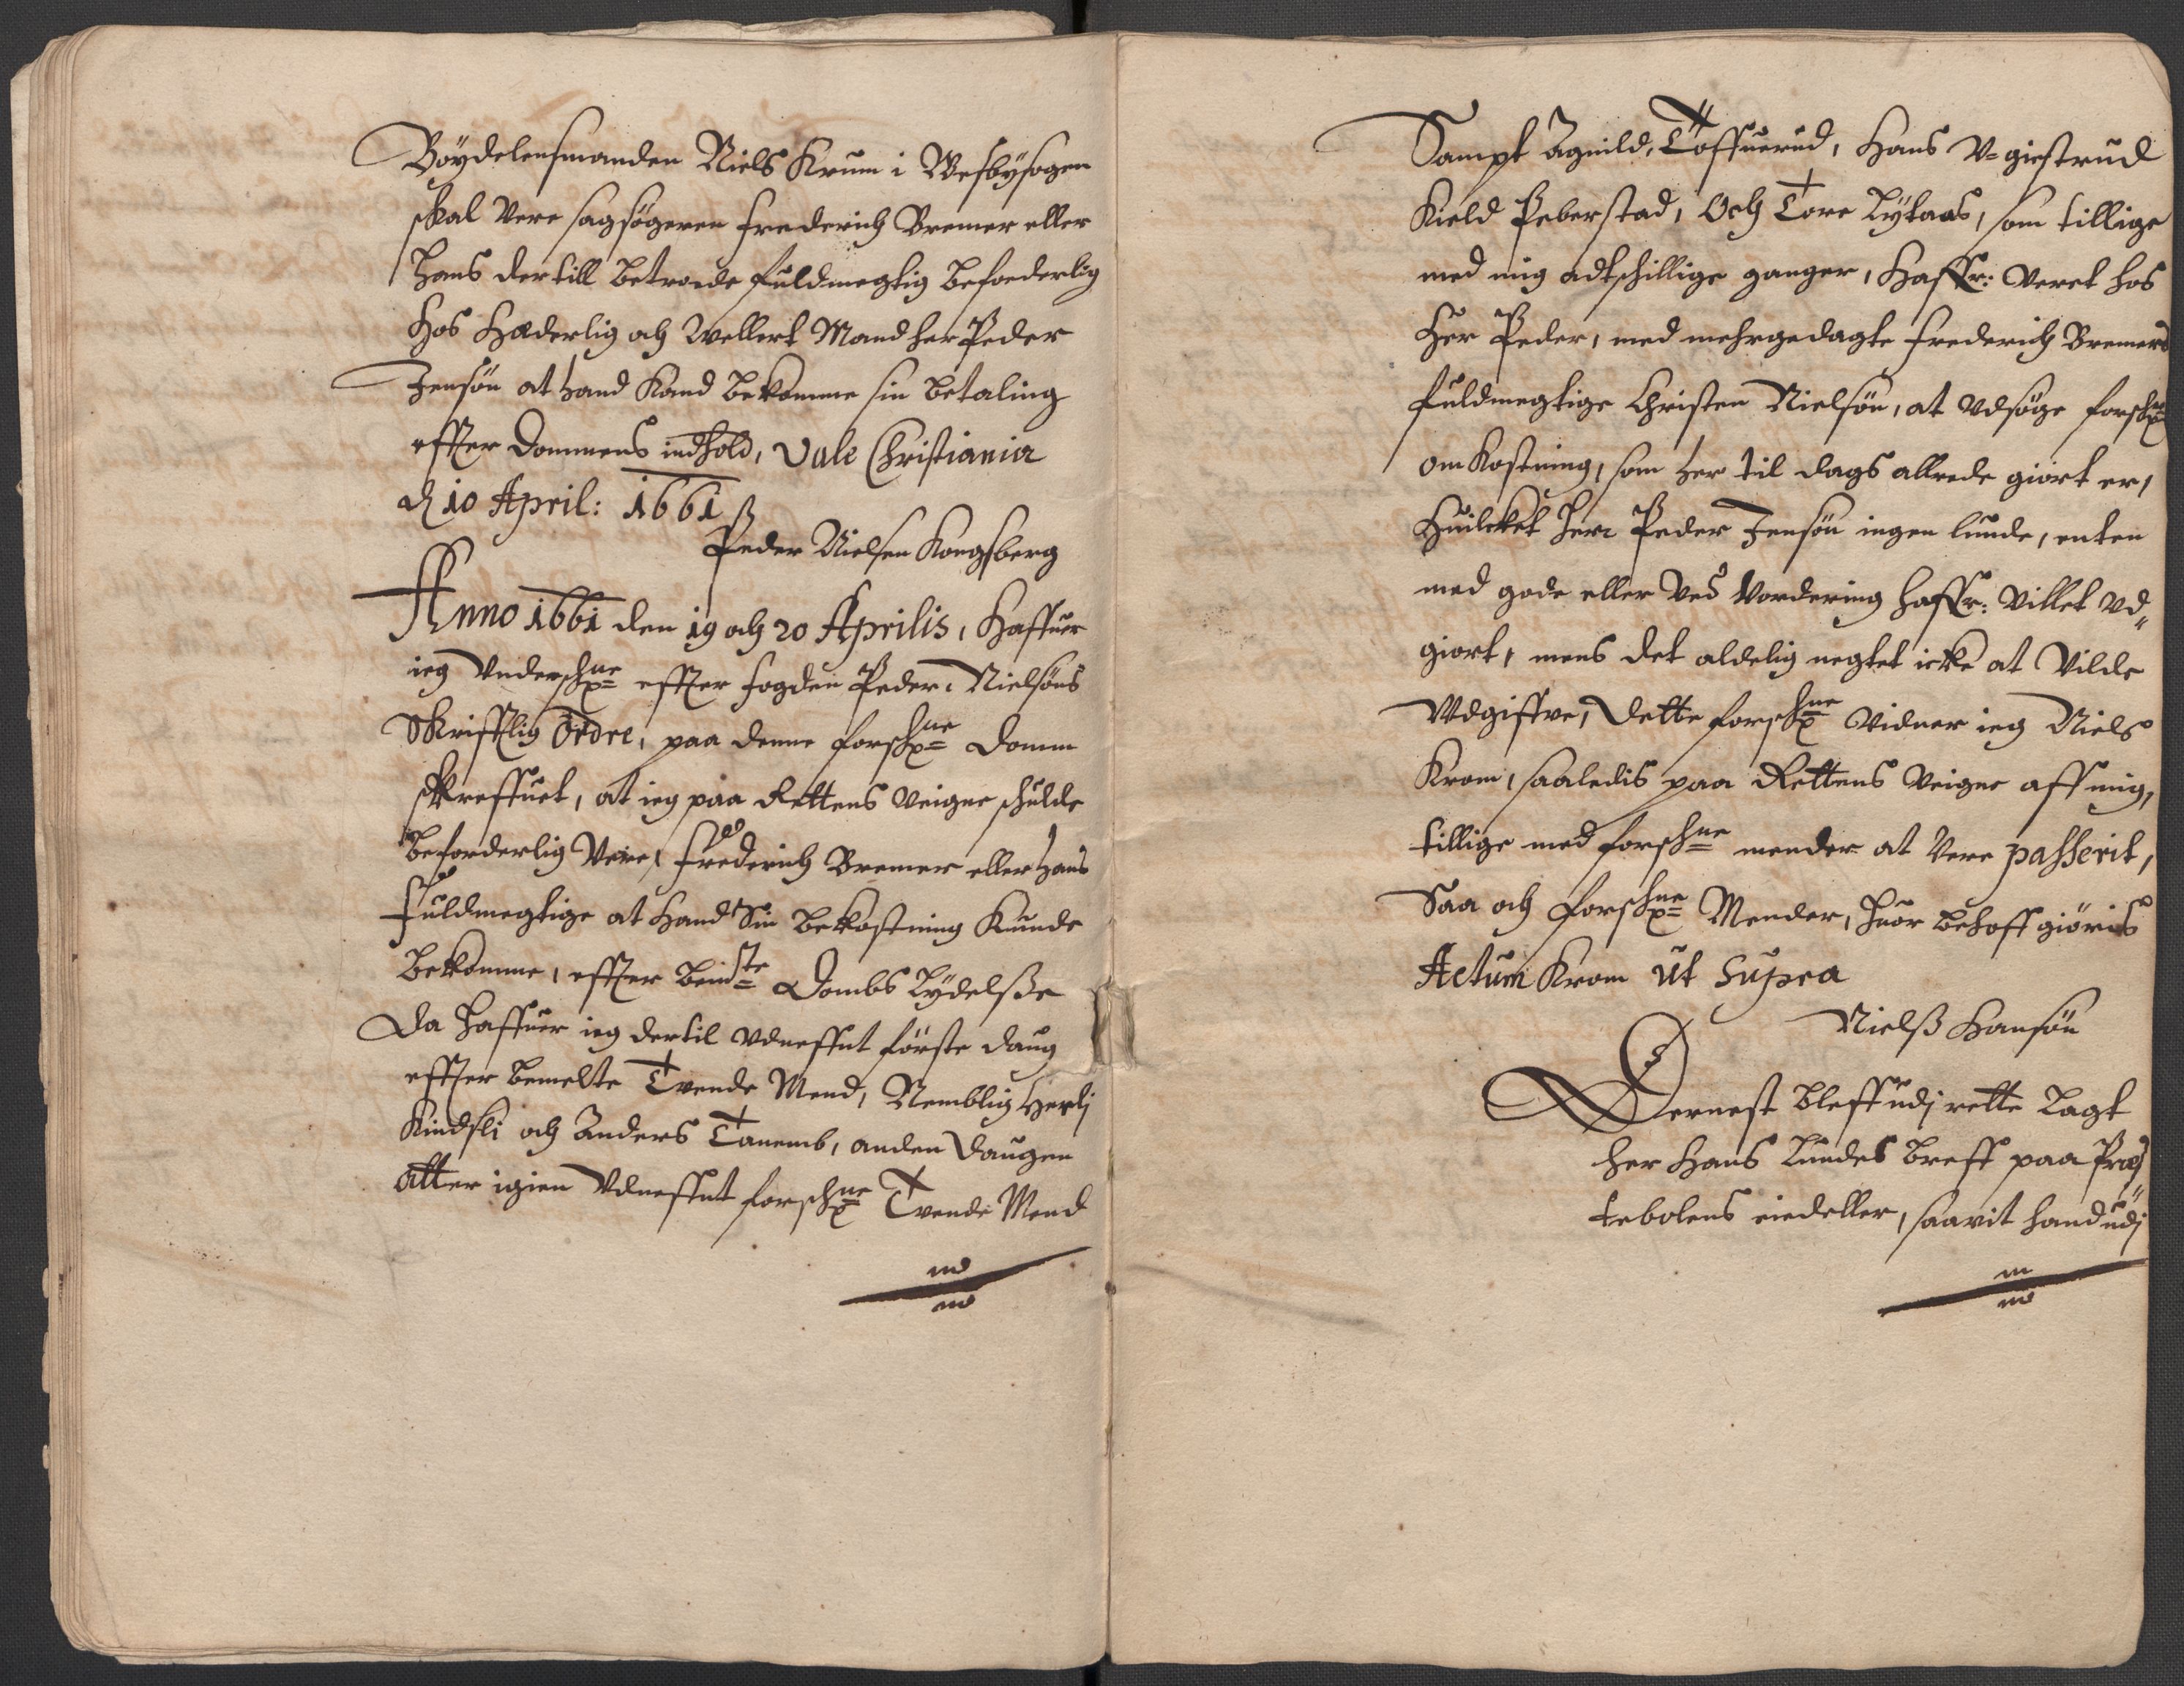 Böydelensmanden Niels Krum i Wesbÿsogen
skal Vere sagsögeren Frederich Bremer eller
hans dertill betroede fuldmegtig befoederlig
hos Hæderlig och Wellert Mand her Peder
Jensön at hand kand bekomme sin betaling
effter Dommens indhold, Vale Christiania
d 10 April: 1661
Peder Nielsen Kongsberg
Anno 1661 den 19 och 20 Aprilis, Haffuer
ieg Undersch:ne effter fogden Peder Nielsöns
Skrifftlig Ordre, paa denne forsch:ne Domm
skreffuet, at ieg paa Rettens Veigne schulde
beforderlig Vere, Frederich Bremer eller hans
Fuldmegtige at hand Sin bekostning kunde
bekomme, effter bemte Dombs Lÿdelsße
Da haffuer ieg dertil Udneffnt förste daug
effter bemelte Tvende Mend, Nemblig Herlj
Kindsli och Anders Tanemb, anden Daugen
Atter igien Udneffnt forsch:ne Tvende Mend
Sampt Agnild, Töffuerud, Hans V=giestrud
Kield Peberstad, Och Tore Lÿtaas, som tillige
med mig adtschillige ganger, haffr: Veret hos
Her Peder, med mehrgedagte Frederich Bremers
fuldmegtige Christen Nielsön, at Udsöge forsch:ne
omkostning, som her til dags allrede giort er,
Huilcket Herr Peder Jensön ingen lunde, enten
med gode eller Ved Vordering haffr: Villet Ud„
giort, mens det aldelig negtet icke at Vilde
Udgiffve, Dette forsch:ne Vidner ieg Niels
Krom, saaledis paa Rettens Veigne aff mig,
tillige med forsch:ne mender at Vere passerit,
Saa och forsch:ne Mender, huor behoff giöris
Actum Krom ut Supra
Nielß Hansön
Dernest bleff udj rette Lagt
her Hans Lundes breff paa Præs
tebolens eiedeller, saavit hand udj